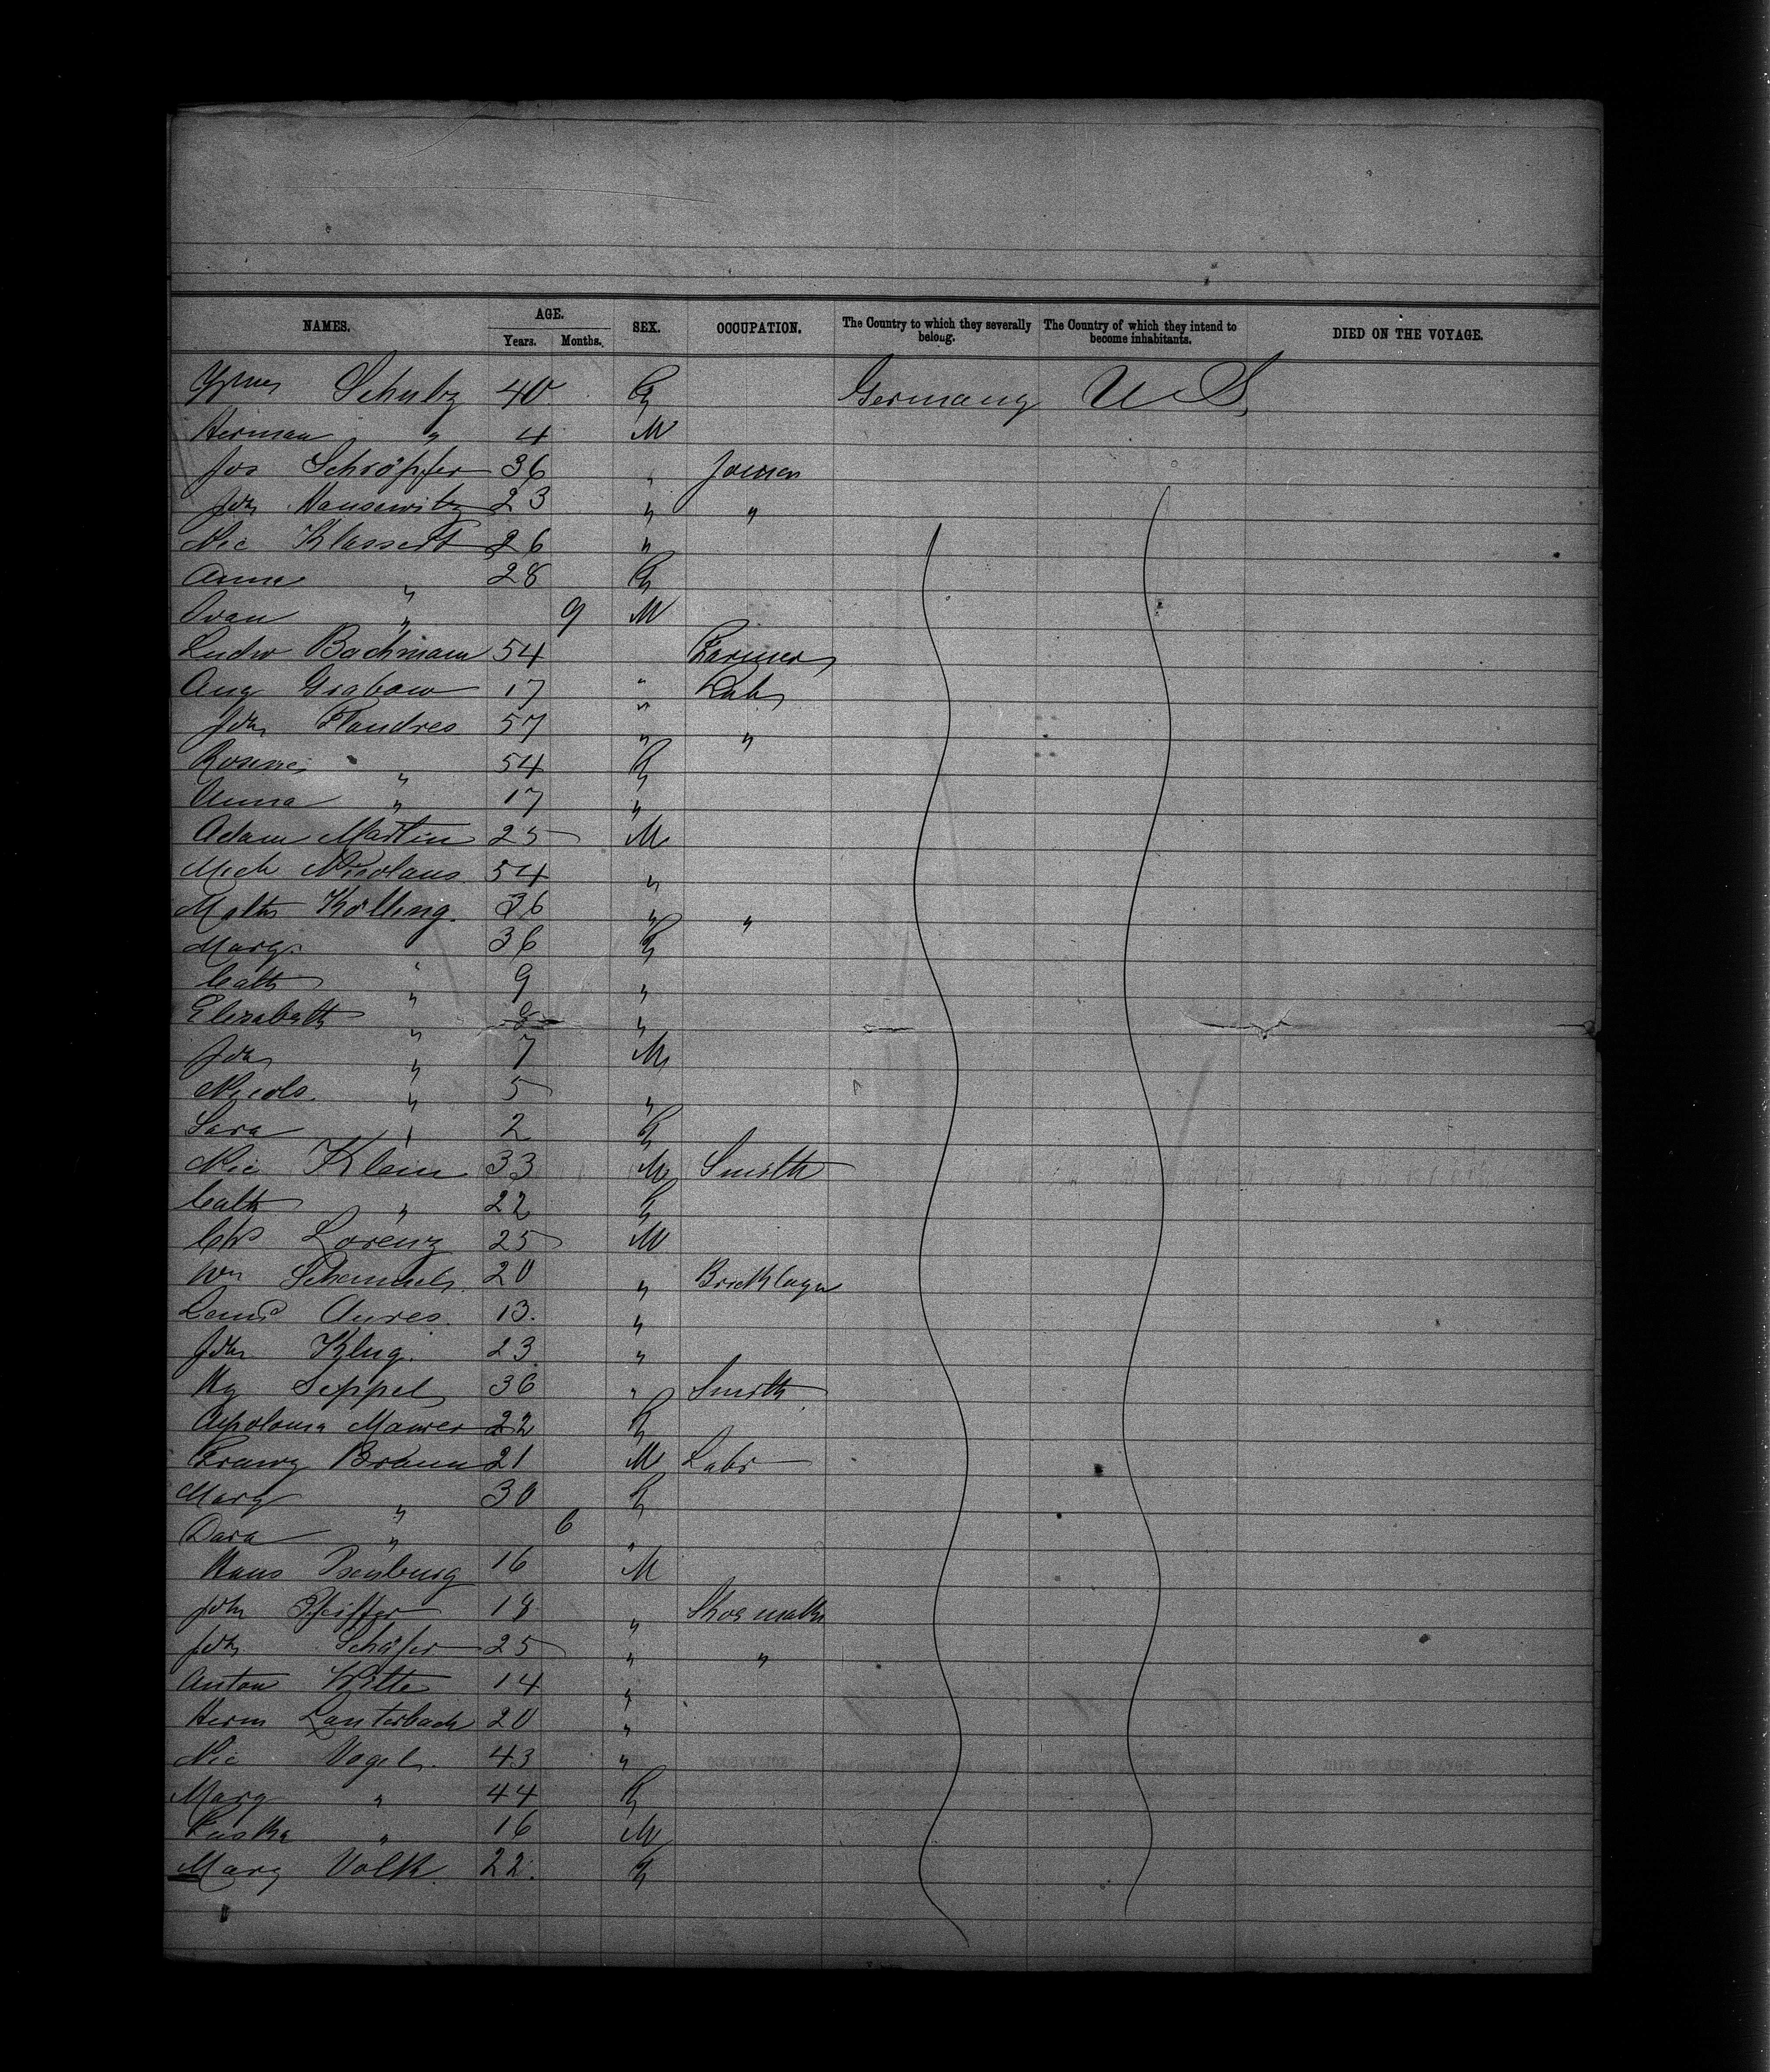 NAMES. AGE. Years. Months. SEX. OCCUPATION. The Country to which they severally belong. The Country of which they intend to become inhabitants. DIED ON THE VOYAGE.
Schulz 40 F Germany U S
Herman " 4 M
Jos Schröpfer 36 "
Joh Hansewitz 23 " "
Nic Klassert 26 "
Anna " 28 F
Ivan " 9 M
Ludw Bachmann 54 " Farmer
Aug Grabow 17 " Lab
Joh Flandres 57 " "
Rosine " 54 F
Anna " 17 "
Adam Martin 25 M
Mich Nicolaus 54 "
Math Kölling 36 " "
Marg. " 36 F
Cath " 9 "
Elizabeth " "
Joh " 7 M
Nicols. " 5 "
Sara " 2 F
Nic Klein 33 M Smith
Cath " 22 F
Chs Lorenz 25 M
Wm 20 " Bricklayer
Aures 13. "
Joh Klug. 23 "
Hy Seppel 36 " Smith
Apolonia Maurer 22 F
Franz Braun 21 M Labr
Marg " 30 F
Dara " 6 "
Hans Isenburg 16 M
Joh Pfeiffer 18 " Shoemaker
Joh Schäfer 25 " "
Anton Witte 14 "
Herm Lauterbach 20 "
Nic Vogel. 43 "
Marg " 44 F
" 16 M
Marg Volk. 22. F